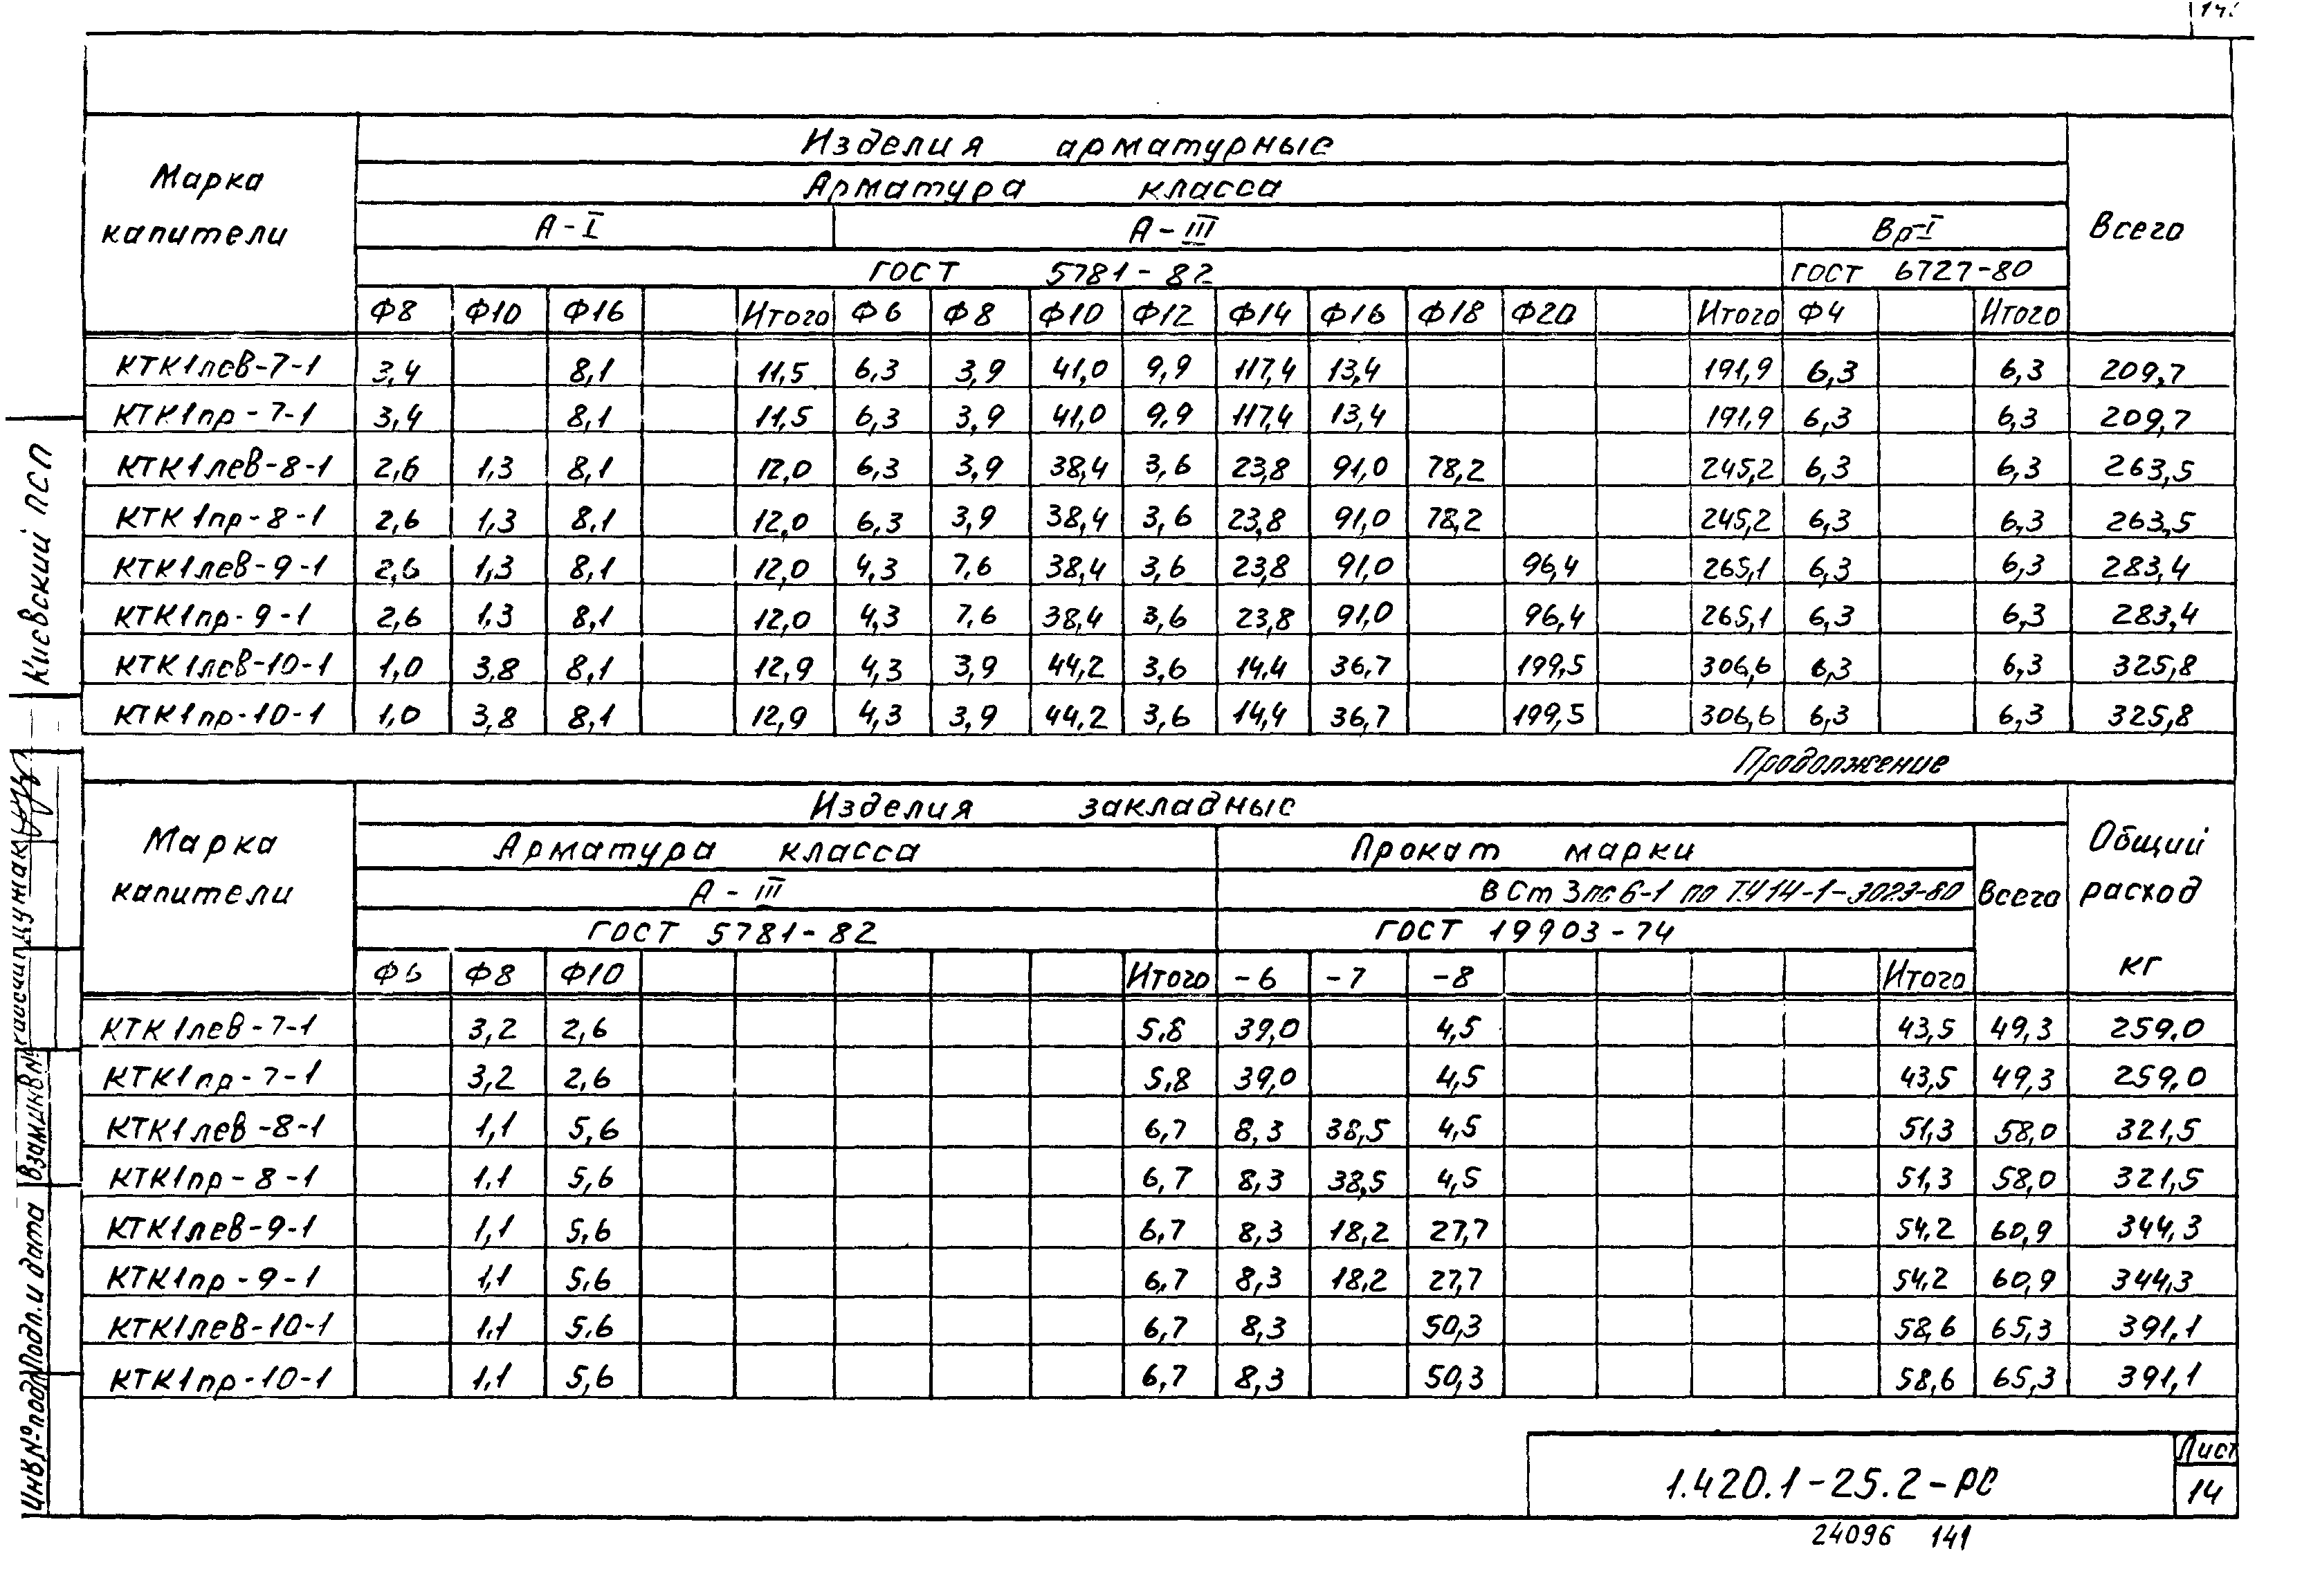 Изделия арматурные
Марка капители
Арматура класса
Всего
А-I А-III Вр-I
ГОСТ 5781-82 ГОСТ 6727-80
Ф8 Ф10 Ф16 Итого Ф6 Ф8 Ф10 Ф12 Ф14 Ф16 Ф18 Ф20 Итого Ф4 Итого
КТК1лев-7-1 3,4 8,1 11,5 6,3 3,9 41,0 9,9 117,4 13,4 191,9 6,3 6,3 209,7
КТК1пр-7-1 3,4 8,1 11,5 6,3 3,9 41,0 9,9 117,4 13,4 191,9 6,3 6,3 209,7
КТК1лев-8-1 2,6 1,3 8,1 12,0 6,3 3,9 38,4 3,6 23,8 91,0 78,2 245,2 6,3 6,3 263,5
КТК1пр-8-1 2,6 1,3 8,1 12,0 6,3 3,9 38,4 3,6 23,8 91,0 78,2 245,2 6,3 6,3 263,5
КТК1лев-9-1 2,6 1,3 8,1 12,0 4,3 7,6 38,4 3,6 23,8 91,0 96,4 265,1 6,3 6,3 283,4
КТК1пр-9-1 2,6 1,3 8,1 12,0 4,3 7,6 38,4 3,6 23,8 91,0 96,4 265,1 6,3 6,3 283,4
КТК1лев-10-1 1,0 3,8 8,1 12,9 4,3 3,9 44,2 3,6 14,4 36,7 199,5 306,6 6,3 6,3 325,8
КТК1пр-10-1 1,0 3,8 8,1 12,9 4,3 3,9 44,2 3,6 14,4 36,7 199,5 306,6 6,3 6,3 325,8
Продолжение
Изделия закладные
Марка капители
Арматура класса Прокат марки
Общий расход кг
А-III ВСт3пс6-1 по ТУ14-1-3023-80 Всего
ГОСТ 5781-82 ГОСТ 19903-74
Ф6 Ф8 Ф10 Итого -6 -7 -8 Итого
КТК1лев-7-1 3,2 2,6 5,8 39,0 4,5 43,5 49,3 259,0
КТК1пр-7-1 3,2 2,6 5,8 39,0 4,5 43,5 49,3 259,0
КТК1лев-8-1 1,1 5,6 6,7 8,3 38,5 4,5 51,3 58,0 321,5
КТК1пр-8-1 1,1 5,6 6,7 8,3 38,5 4,5 51,3 58,0 321,5
КТК1лев-9-1 1,1 5,6 6,7 8,3 18,2 27,7 54,2 60,9 344,3
КТК1пр-9-1 1,1 5,6 6,7 8,3 18,2 27,7 54,2 60,9 344,3
КТК1лев-10-1 1,1 5,6 6,7 8,3 50,3 58,6 65,3 391,1
КТК1пр-10-1 1,1 5,6 6,7 8,3 50,3 58,6 65,3 391,1
Киевский ПСП
Взам.инв.№
Подп.и дата
Инв.№подл
1.420.1-25.2-РС
Лист
14
24096 141